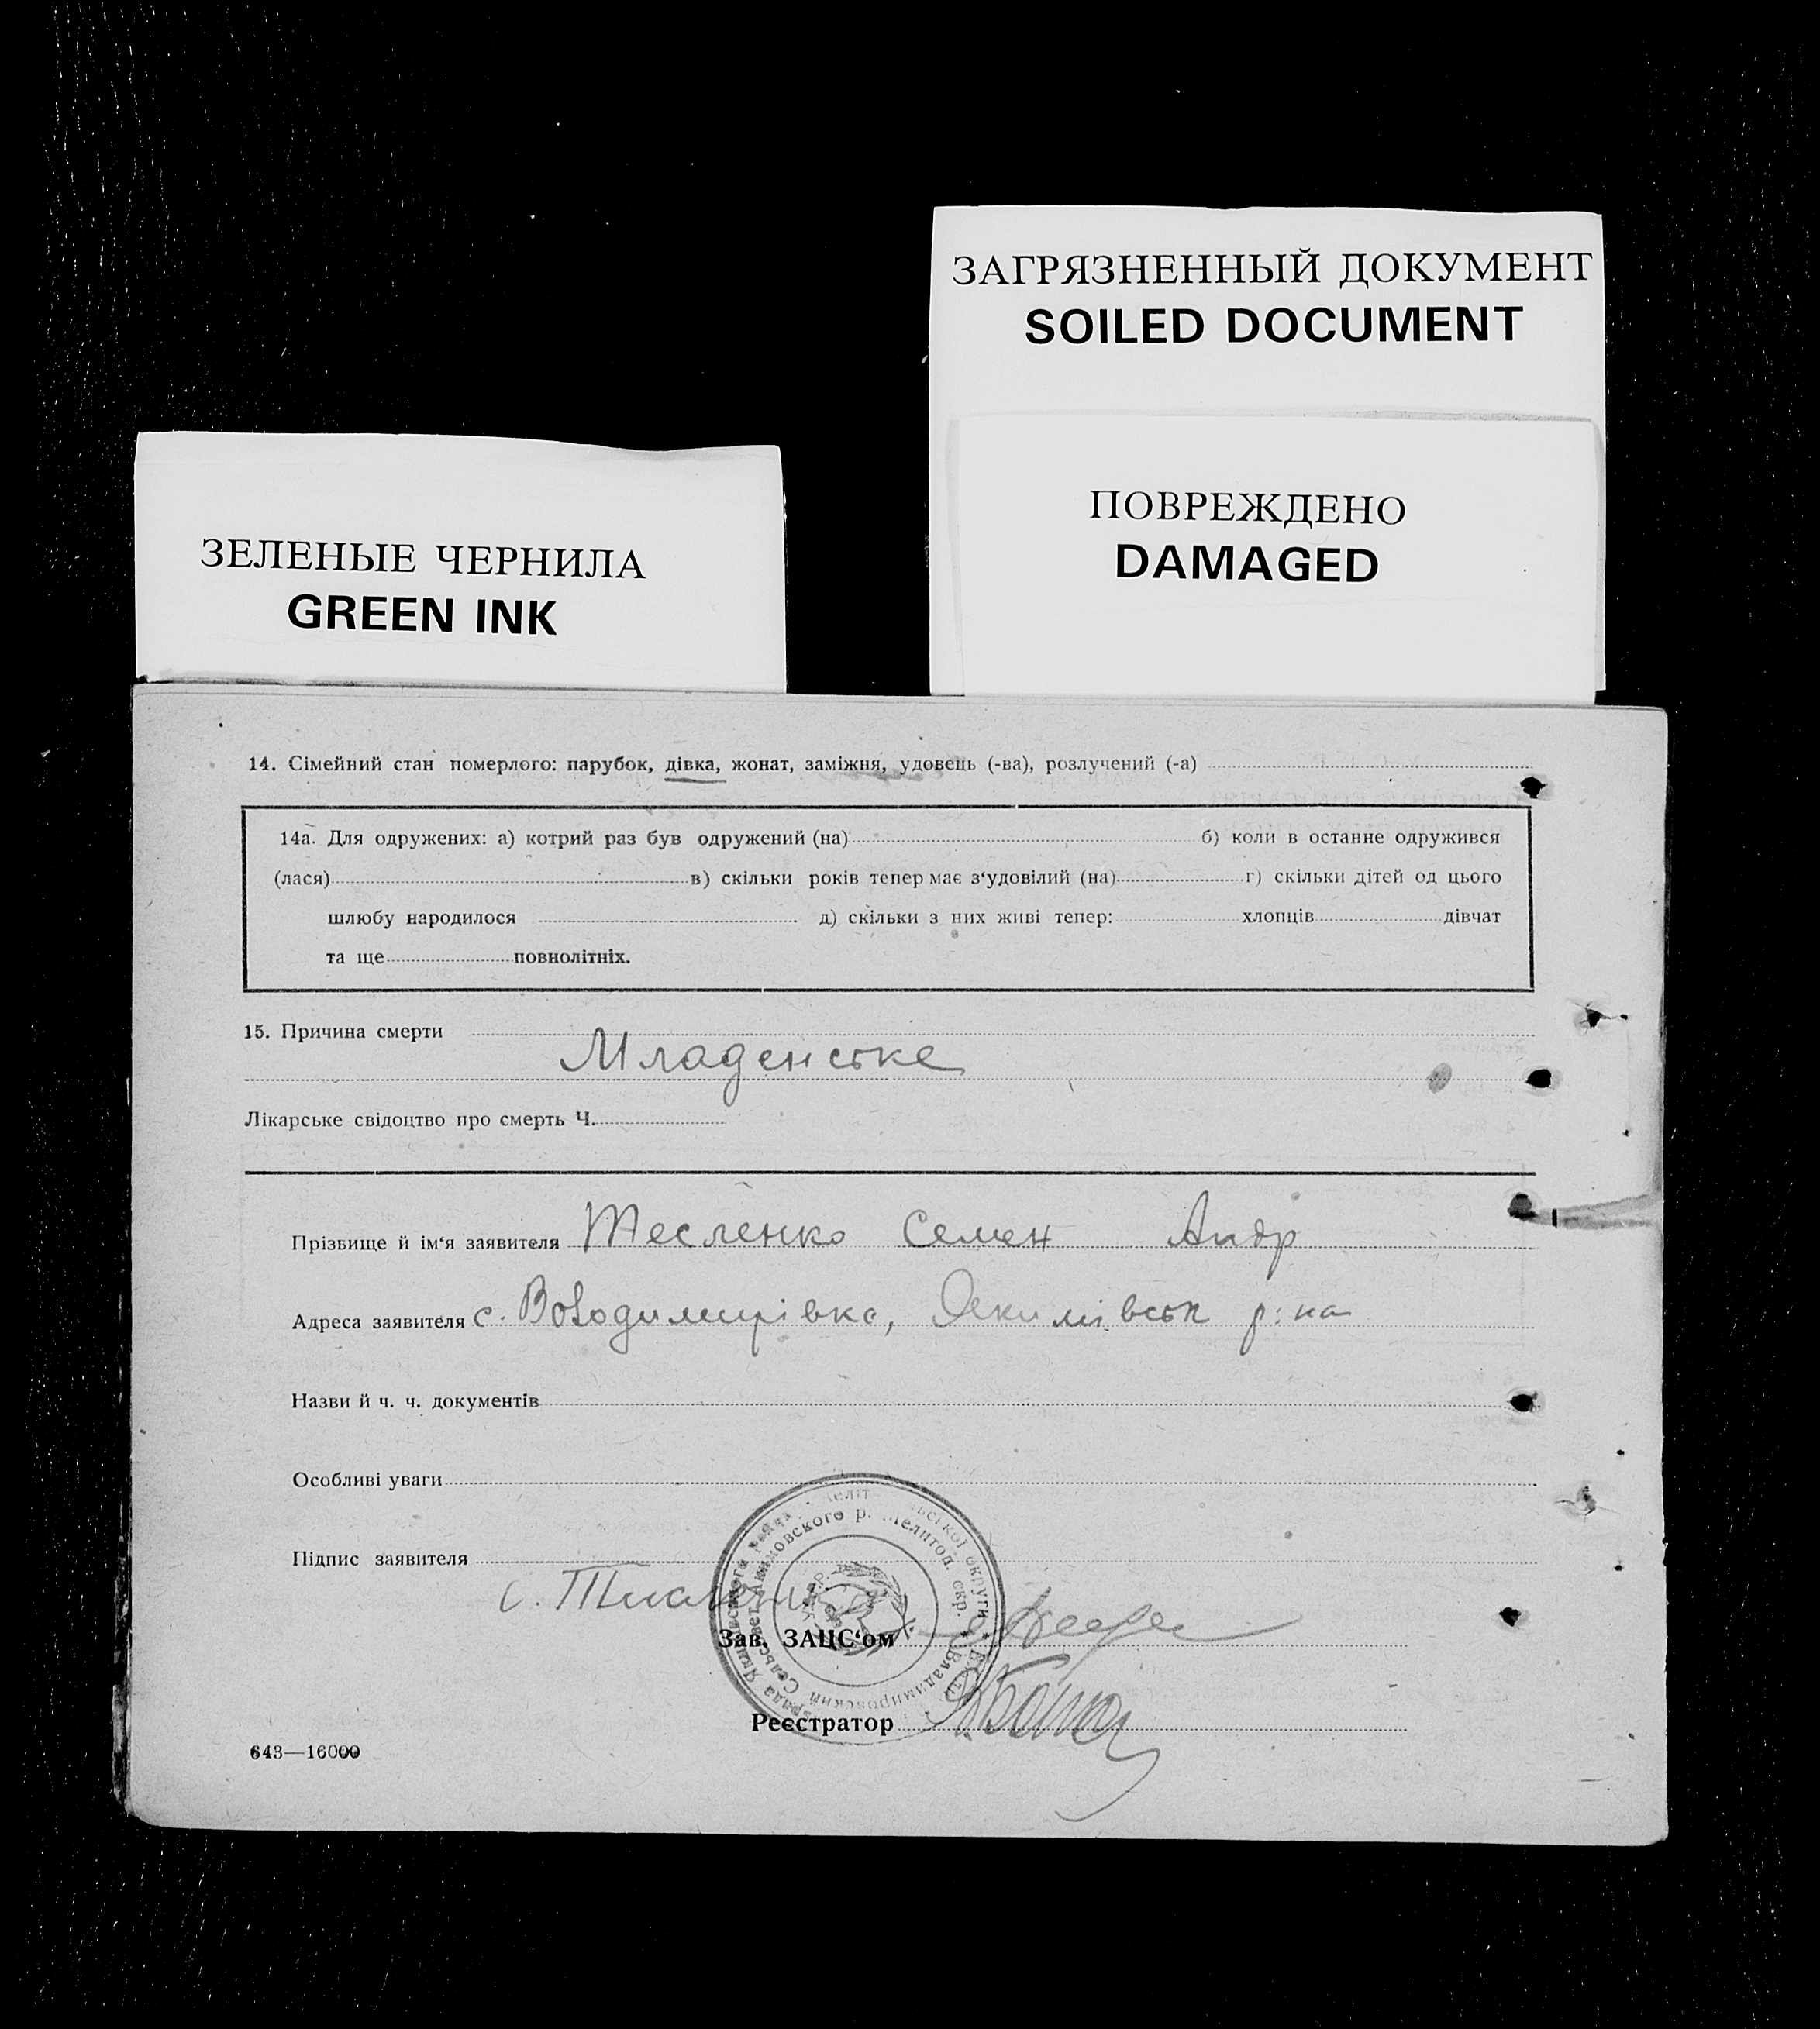 ЗАГРЯЗНЕННЫЙ ДОКУМЕНТ
SOILED DOCUMENT
ПОВРЕЖДЕНО
DAMAGED
ЗЕЛЕНЫЕ ЧЕРНИЛА
GREEN INK
14. Сімейний стан померлого: парубок, дівка, жонат, заміжня, удовець (-ва), розлучений (-а)
14а. Для одружених: а) котрий раз був одружений (на) б) коли в останне одружився
(лася) в) скільки років тепер має з‘удовілий (на) г) скільки дітей од цього
шлюбу народилося д) скільки з них живі тепер: хлопців дівчат
та ще повнолітніх.
15. Причина смерти
Младенське
Лікарське свідоцтво про смерть Ч.
Прізвище й ім‘я заявителя Тесленко Семен Андр
Адреса заявителя с. Володимирівка, Якимівськ р-на
Назви й ч. ч. документів
Особливі уваги
Підпис заявителя
с.
Зав. ЗАЦС‘ом
Реєстратор
Владимировский Сельсовет Акимовского р. Мелитоп. окр.
643—16000